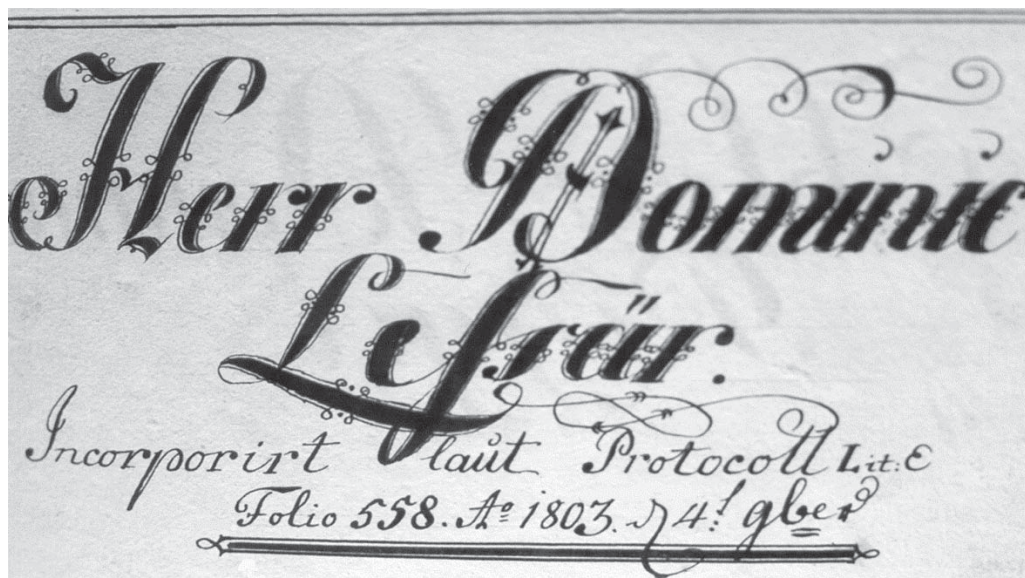 Herr Dominic
Lefrär.
Incorporirt laut Protocoll Lit: E
Folio 558. Ao 1803. 4t 9ber